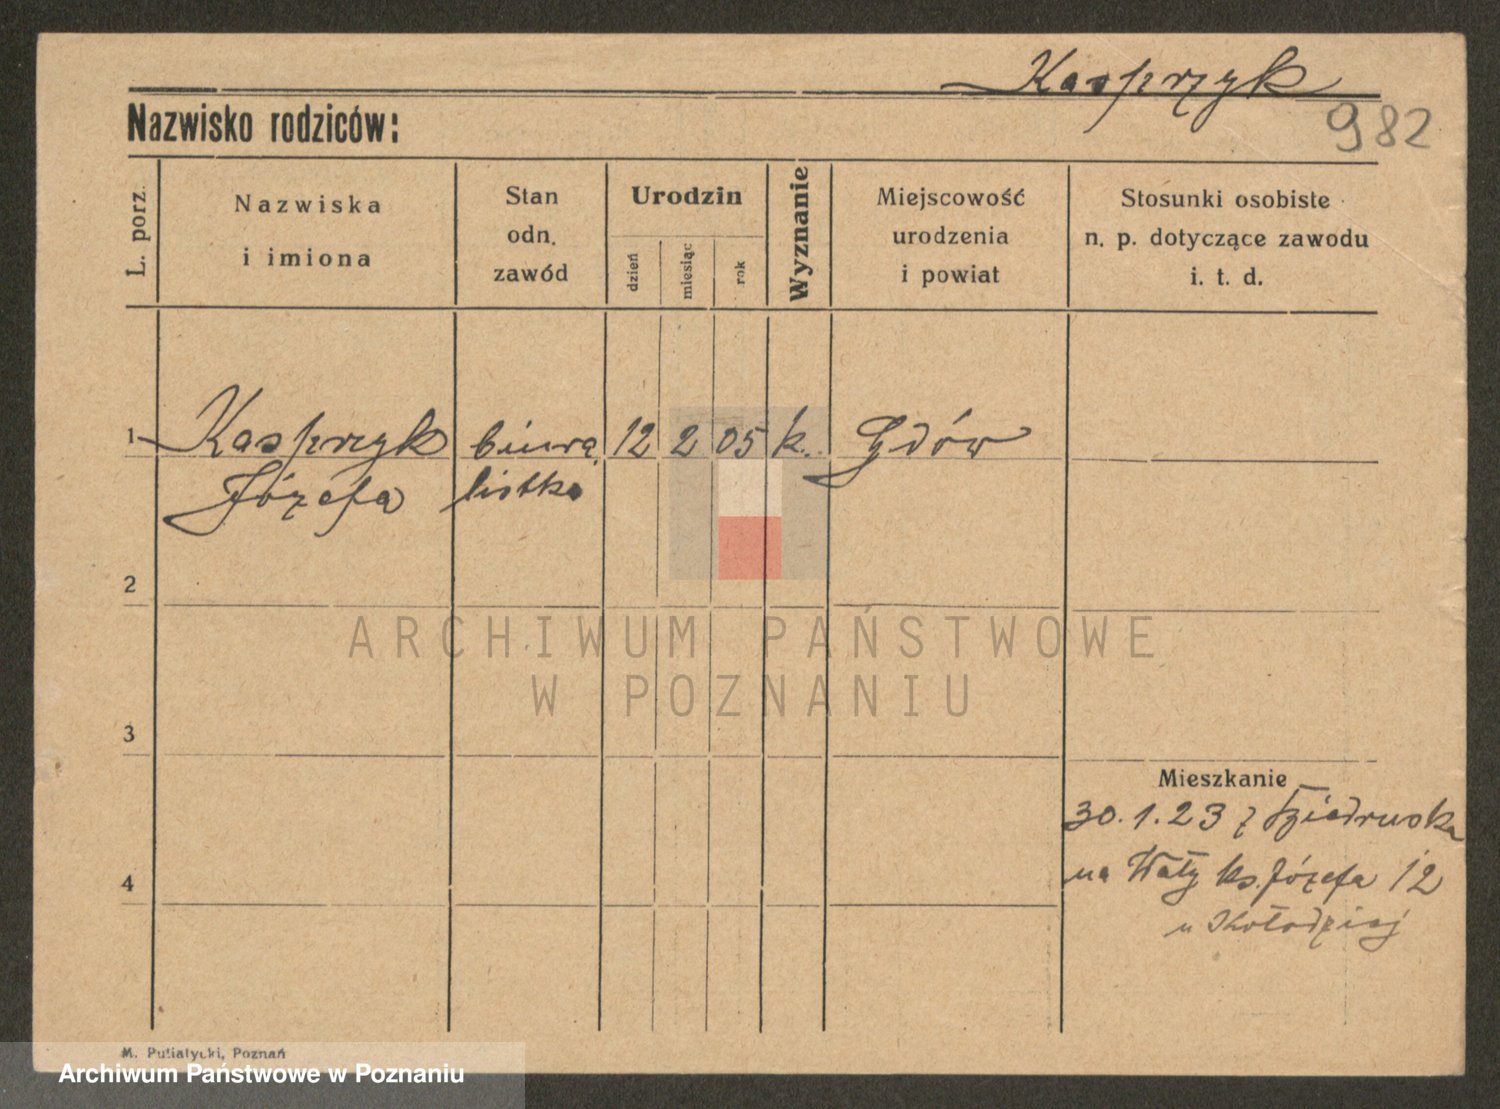 Kasprzyk
982
Nazwisko rodziców:
L. porz.
Nazwiska
i imiona
Stan
odn.
zawód
Urodzin
dzień
miesiąc
rok
Wyznanie
Miejscowość
urodzenia
i powiat
Stosunki osobiste
n. p. dotyczące zawodu
i. t. d.
1 Kasprzyk biura 12 2 05 k. Gdów
Józefa listka
2
3
4
Mieszkanie
30.1.23 z Biedruska
na Wały ks. Józefa 12
u Kołodziej
M. Putiatycki, Poznań
ARCHIWUM PAŃSTWOWE
W POZNANIU
Archiwum Państwowe w Poznaniu